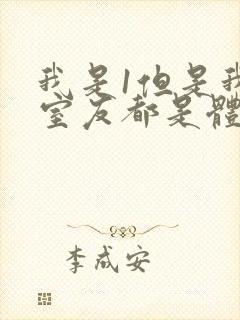 我是1但是我
室友都是體
李成安